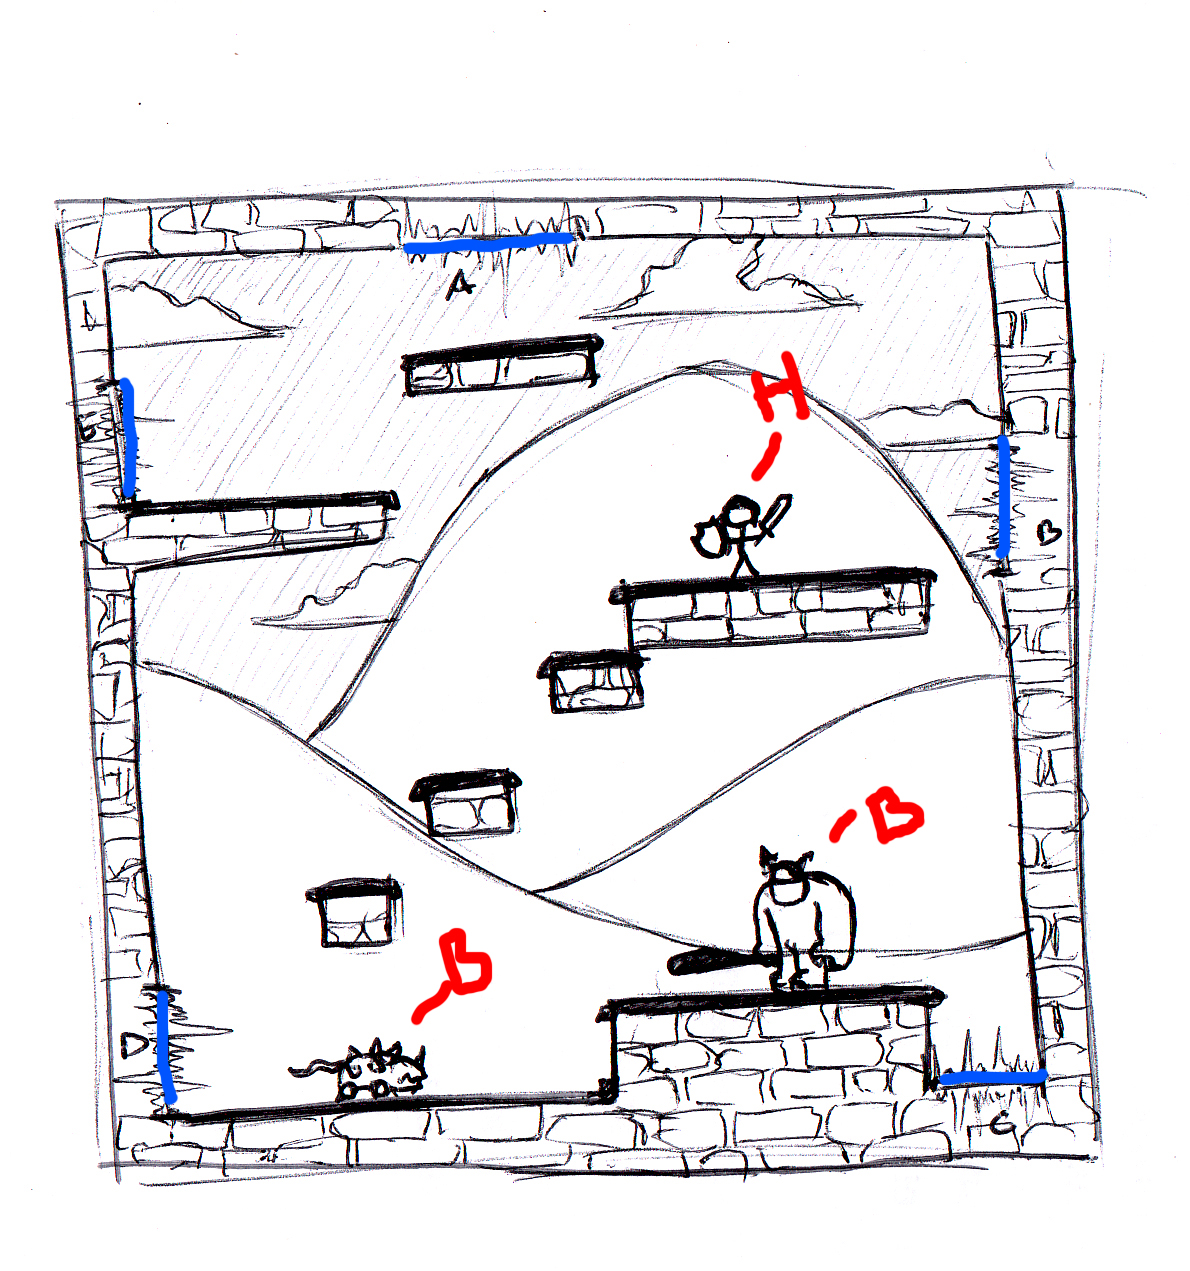 A
H
B
B
B
D
C